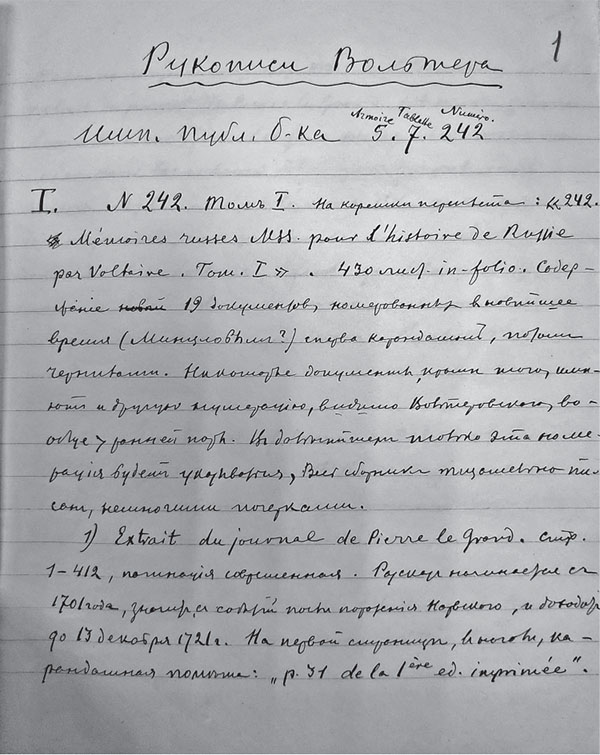 1
Рукописи Вольтера
Armoire Tablette Numéro.
Имп. публ. б-ка 5. 7. 242
I. N 242. Томъ I. На корешки переплета: «242.
Mémoires russes MSS. pour l'histoire de Russie
par Voltaire. Tom. I». 430 лист. in-folio. Содер-
жаніе новой 19 документовъ, номерованныхъ в новѣйшее
время (Минцловымъ?) сперва карандашемъ, потомъ
чернилами. Некоторые документы, кромѣ того, име-
ютъ и другую нумерацію, видимо Вольтеровскою, во-
обще ранней поры. Въ дальнѣйшемъ только эта номе-
рація будетъ указываться. Весь сборникъ тщательно пи-
сан, немногими почерками.
1) Extrait du journal de Pierre le Grand. стр.
1–412, пагинація современная. Рассказ начинается съ
1701 года, с событій после пораженія Нарвского, и доходит
до 13 декабря 1721 г. На первой странице, внизу, ка-
рандашная помета: „p. 31 de la 1ère ed. imprimée".